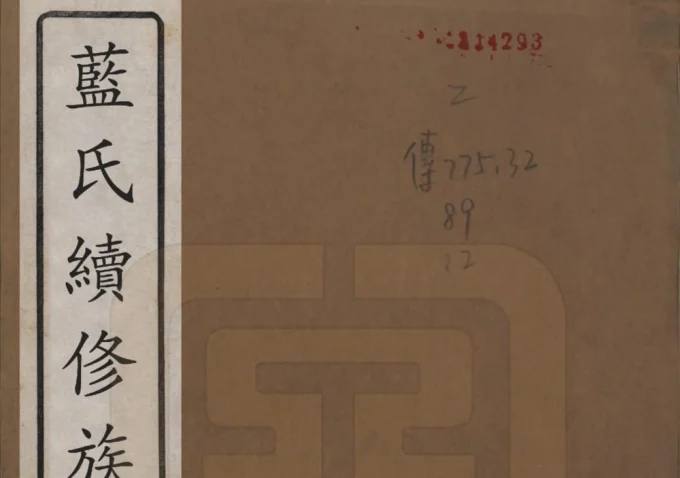 藍氏續修族
214293
乙
傳775.32
89
:2